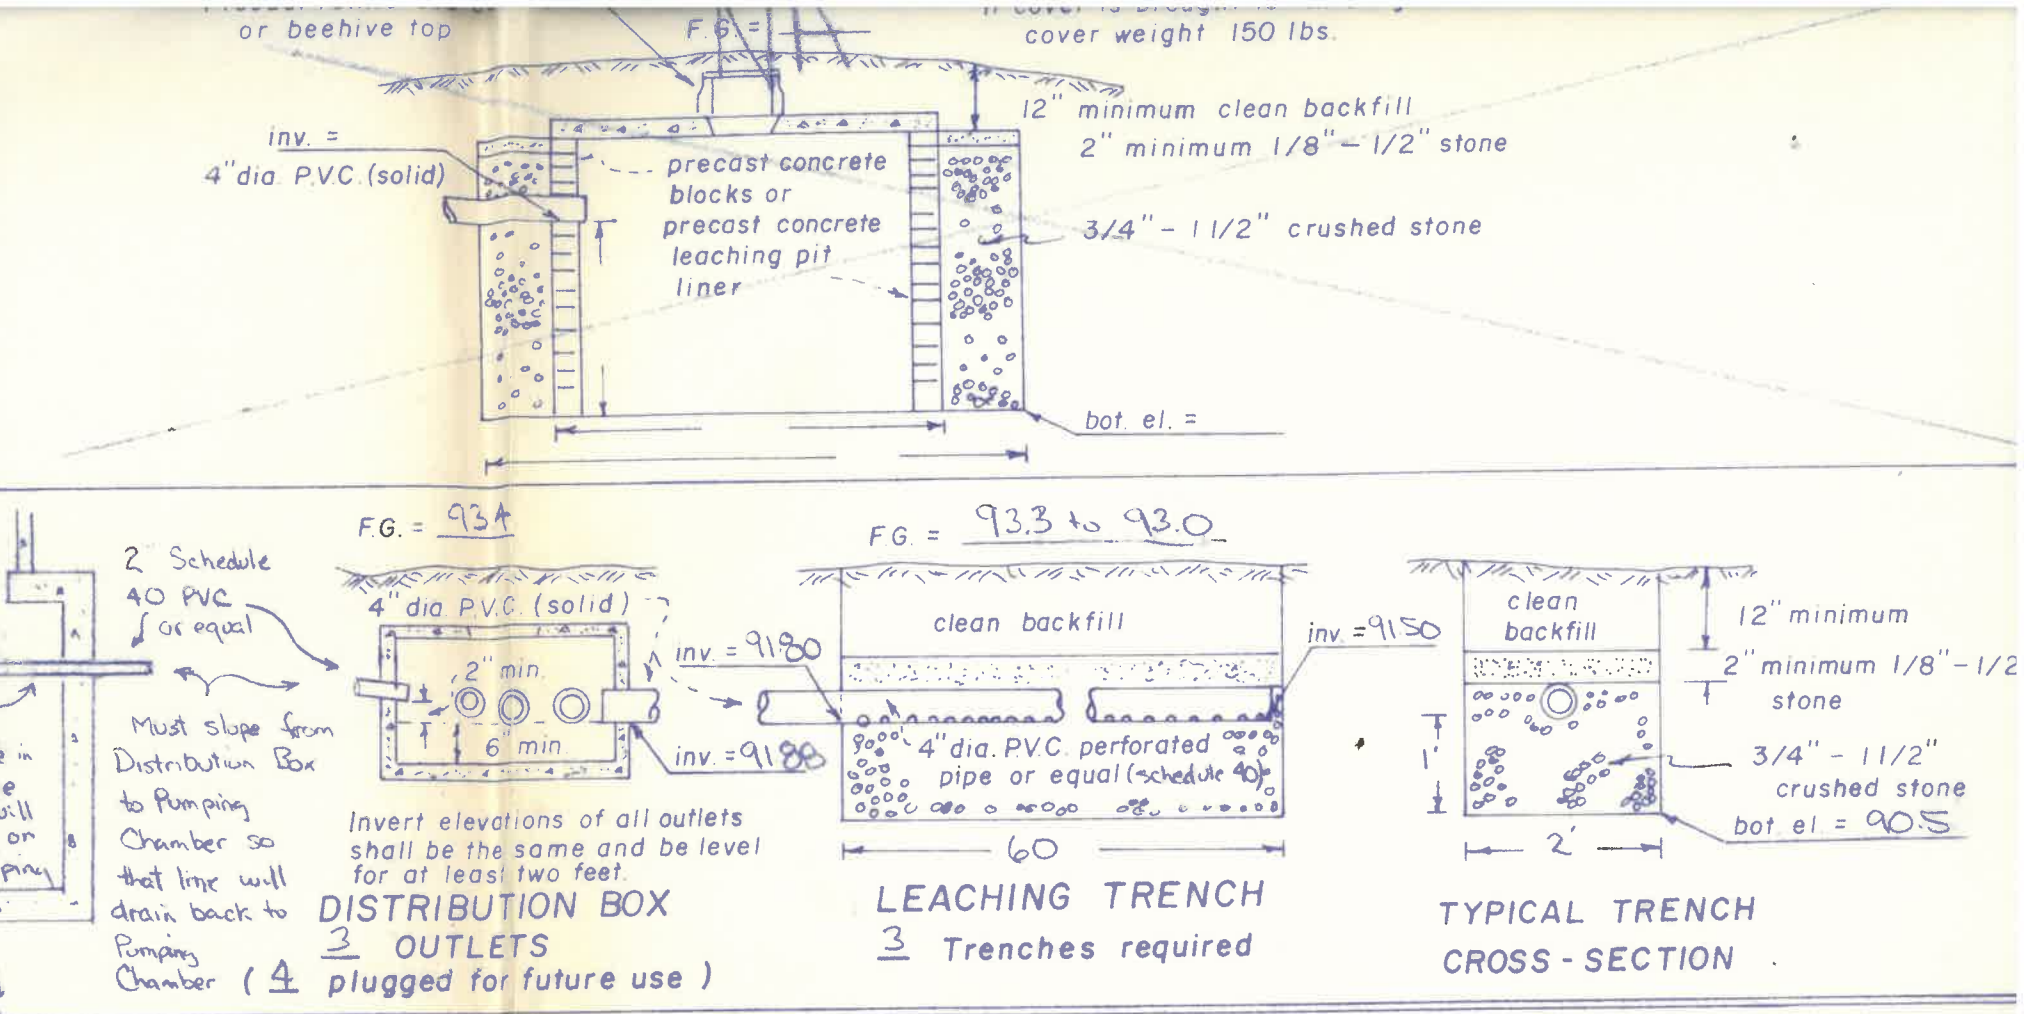 or beehive top
F.G. =
cover weight 150 lbs.
12" minimum clean backfill
2" minimum 1/8" – 1/2" stone
inv. =
4" dia. P.V.C. (solid)
precast concrete
blocks or
precast concrete
leaching pit
liner
3/4" - 1 1/2" crushed stone
bot. el. =
2" Schedule
40 PVC
or equal
Must slope from
Distribution Box
to Pumping
Chamber so
that line will
drain back to
Pumping
Chamber
e in
e
will
on
ping
F.G. = 93.4
4" dia. P.V.C. (solid)
2" min.
6" min.
inv. = 91.88
Invert elevations of all outlets
shall be the same and be level
for at least two feet.
DISTRIBUTION BOX
3 OUTLETS
( 4 plugged for future use )
F.G. = 93.3 to 93.0
clean backfill
inv. = 91.80
inv. = 91.50
4" dia. P.V.C. perforated
pipe or equal (schedule 40)
60
LEACHING TRENCH
3 Trenches required
clean
backfill
12" minimum
2" minimum 1/8"-1/2
stone
1'
3/4" - 1 1/2"
crushed stone
bot. el. = 90.5
2'
TYPICAL TRENCH
CROSS - SECTION